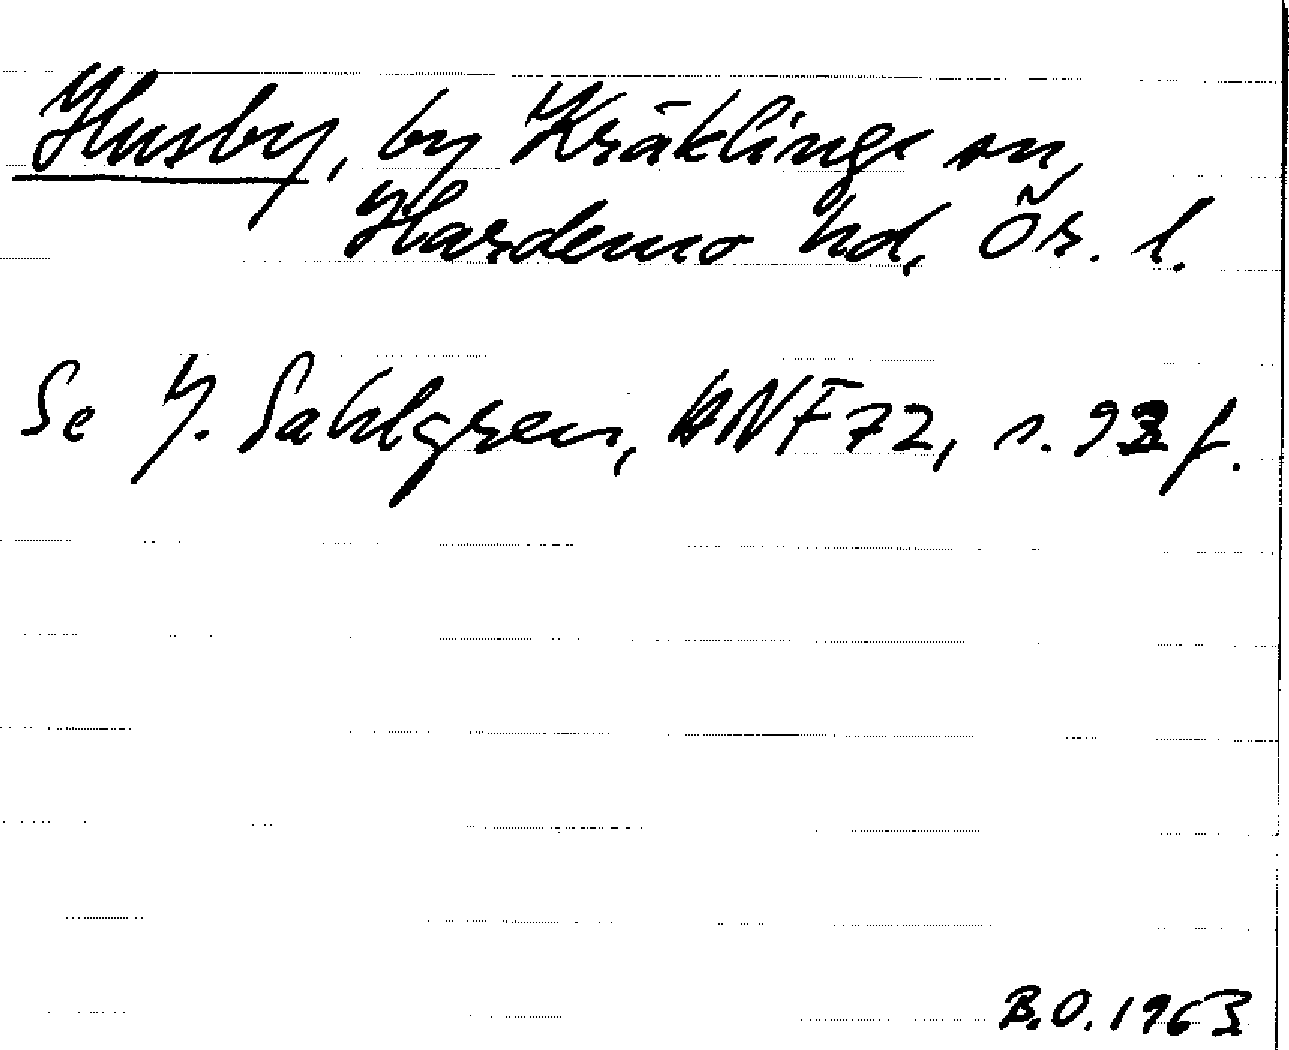 Husby, by Kräklinge sn,
Hardemo hd, Ör. l.
Se J. Sahlgren, ANF 72, s. 93 f.
B.O. 1963